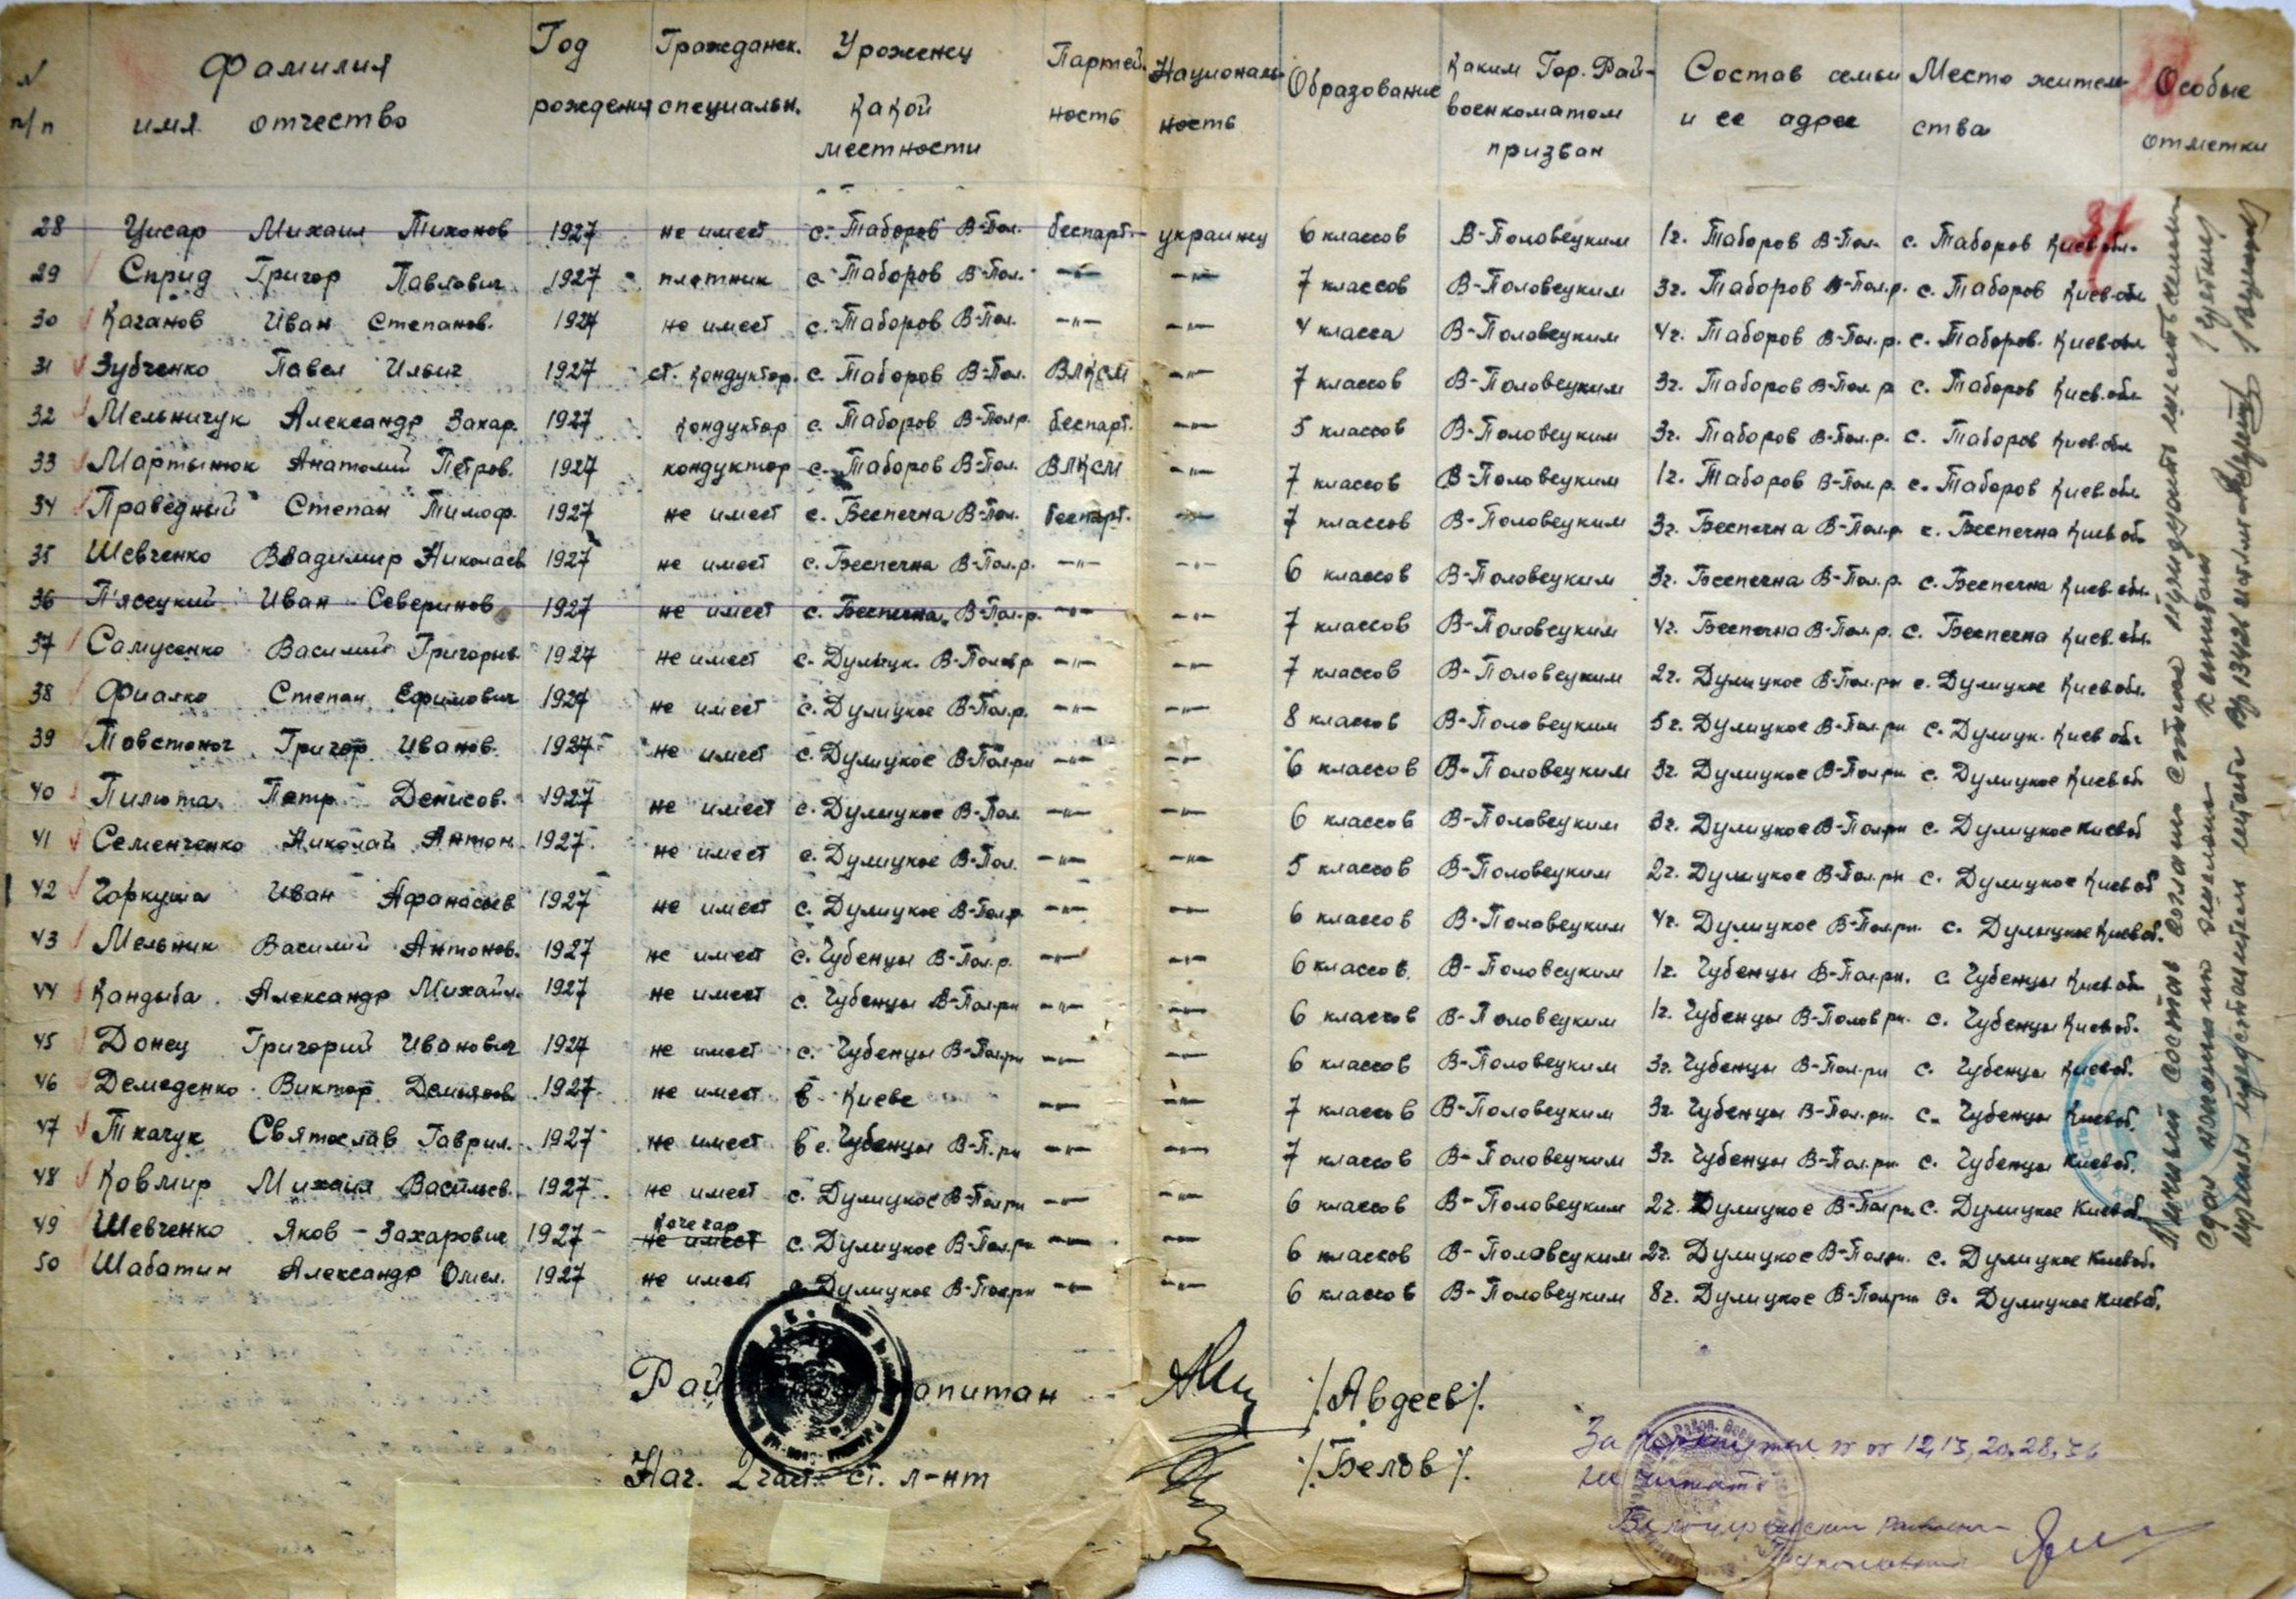 № п/п Фамилия имя отчество Год рождения Гражданск. специальн. Уроженец какой местности Партей-ность Националь-ность Образование Каким Гор. Рай-военкоматом призван Состав семьи и ее адрес Место житель-ства Особые отметки
28 Цисар Михаил Тихонов 1927 не имеет с. Таборов В-Пол. беспарт. украинец 6 классов В-Половецким 1ч. Таборов В-Пол. с. Таборов Киев обл.
29 Сприд Григор Павлович 1927 плотник с. Таборов В-Пол. -"- -"- 7 классов В-Половецким 3ч. Таборов В-Пол.р. с. Таборов Киев обл
30 Качанов Иван Степанов. 1927 не имеет с. Таборов В-Пол. -"- -"- 4 класса В-Половецким 4ч. Таборов В-Пол.р. с. Таборов. Киев обл
31 Зубченко Павел Ильич 1927 ст. кондуктор. с. Таборов В-Пол. ВЛКСМ -"- 7 классов В-Половецким 3ч. Таборов В-Пол.р с. Таборов Киев.обл
32 Мельничук Александр Захар. 1927 кондуктор с. Таборов В-Пол.р. беспарт. -"- 5 классов В-Половецким 3ч. Таборов В-Пол.р. с. Таборов Киев.обл
33 Мартынюк Анатолий Петров. 1927 кондуктор с. Таборов В-Пол. ВЛКСМ -"- 7 классов В-Половецким 1ч. Таборов В-Пол.р. с. Таборов Киев обл.
34 Праведный Степан Тимоф. 1927 не имеет с. Беспечна В-Пол. беспарт. -"- 7 классов В-Половецким 3ч. Беспечна В-Пол.р с. Беспечна Киев об.
35 Шевченко Владимир Николаев 1927 не имеет с. Беспечна В-Пол.р. -"- -"- 6 классов В-Половецким 3ч. Беспечна В-Пол.р. с. Беспечна Киев.обл.
36 П'ясецкий Иван Северинов 1927 не имеет с. Беспечна. В-Пол.р. -"- -"- 7 классов В-Половецким 4ч. Беспечна В-Пол.р. с. Беспечна Киев.обл.
37 Самусенко Василий Григорьев. 1927 не имеет с. Дулицк. В-Полов р -"- -"- 7 классов В-Половецким 2ч. Дулицкое В-Пол.рн с. Дулицкое Киев обл.
38 Фиалко Степан Ефимович 1927 не имеет с. Дулицкое В-Пол.р. -"- -"- 8 классов В-Половецким 5ч. Дулицкое В-Пол.рн с. Дулицк. Киев обл
39 Товстоног Григор Иванов. 1927 не имеет с. Дулицкое В-Пол.рн -"- -"- 6 классов В-Половецким 3ч. Дулицкое В-Пол.рн с. Дулицкое Киев об.
40 Пилюта Петр Денисов. 1927 не имеет с. Дулицкое В-Пол. -"- -"- 6 классов В-Половецким 3ч. Дулицкое В-Пол.рн с. Дулицкое Киев об
41 Семенченко Николай Антон. 1927 не имеет с. Дулицкое В-Пол. -"- -"- 5 классов В-Половецким 2ч. Дулицкое В-Пол.рн с. Дулицкое Киев об
42 Гаркуша Иван Афанасьев 1927 не имеет с. Дулицкое В-Пол.р. -"- -"- 6 классов В-Половецким 4ч. Дулицкое В-Пол.рн. с. Дулицкое Киев об.
43 Мельник Василий Антонов. 1927 не имеет с. Чубенцы В-Пол.р. -"- -"- 6 классов. В-Половецким 1ч. Чубенцы В-Пол.рн. с. Чубенцы Киев об
44 Кандыба Александр Михайл. 1927 не имеет с. Чубенцы В-Пол.рн -"- -"- 6 классов В-Половецким 1ч. Чубенцы В-Полов рн. с. Чубенцы Киев об.
45 Донец Григорий Иванович 1927 не имеет с. Чубенцы В-Пол.рн -"- -"- 6 классов В-Половецким 3ч. Чубенцы В-Пол.рн с. Чубенцы Киев об.
46 Демеденко Виктор 1927 не имеет в Киеве -"- -"- 7 классов В-Половецким 3ч. Чубенцы В-Пол.рн. с. Чубенцы Киев об.
47 Ткачук Святослав Гаврил. 1927 не имеет в с. Чубенцы В-П.рн -"- -"- 7 классов В-Половецким 3ч. Чубенцы В-Пол.рн. с. Чубенцы Киев об.
48 Ковмир Михаил Васильев. 1927 не имеет с. Дулицкое В-Пол рн -"- -"- 6 классов В-Половецким 2ч. Дулицкое В-Пол рн. с. Дулицкое Киев об.
49 Шевченко Яков - Захарович 1927 не имеет кочегар с. Дулицкое В-Пол.рн -"- -"- 6 классов В-Половецким 2ч. Дулицкое В-Пол.рн. с. Дулицкое Киев об.
50 Шабатин Александр Омел. 1927 не имеет с. Дулицкое В-Пол рн -"- -"- 6 классов В-Половецким 8ч. Дулицкое В-Пол рн с. Дулицкое Киев об.
Рай капитан /Авдеев/.
Нач. 2 част. ст. л-нт /Белов/.
За 12, 13, 20, 28, 36
не читать
Личный состав согласно списка
сдал